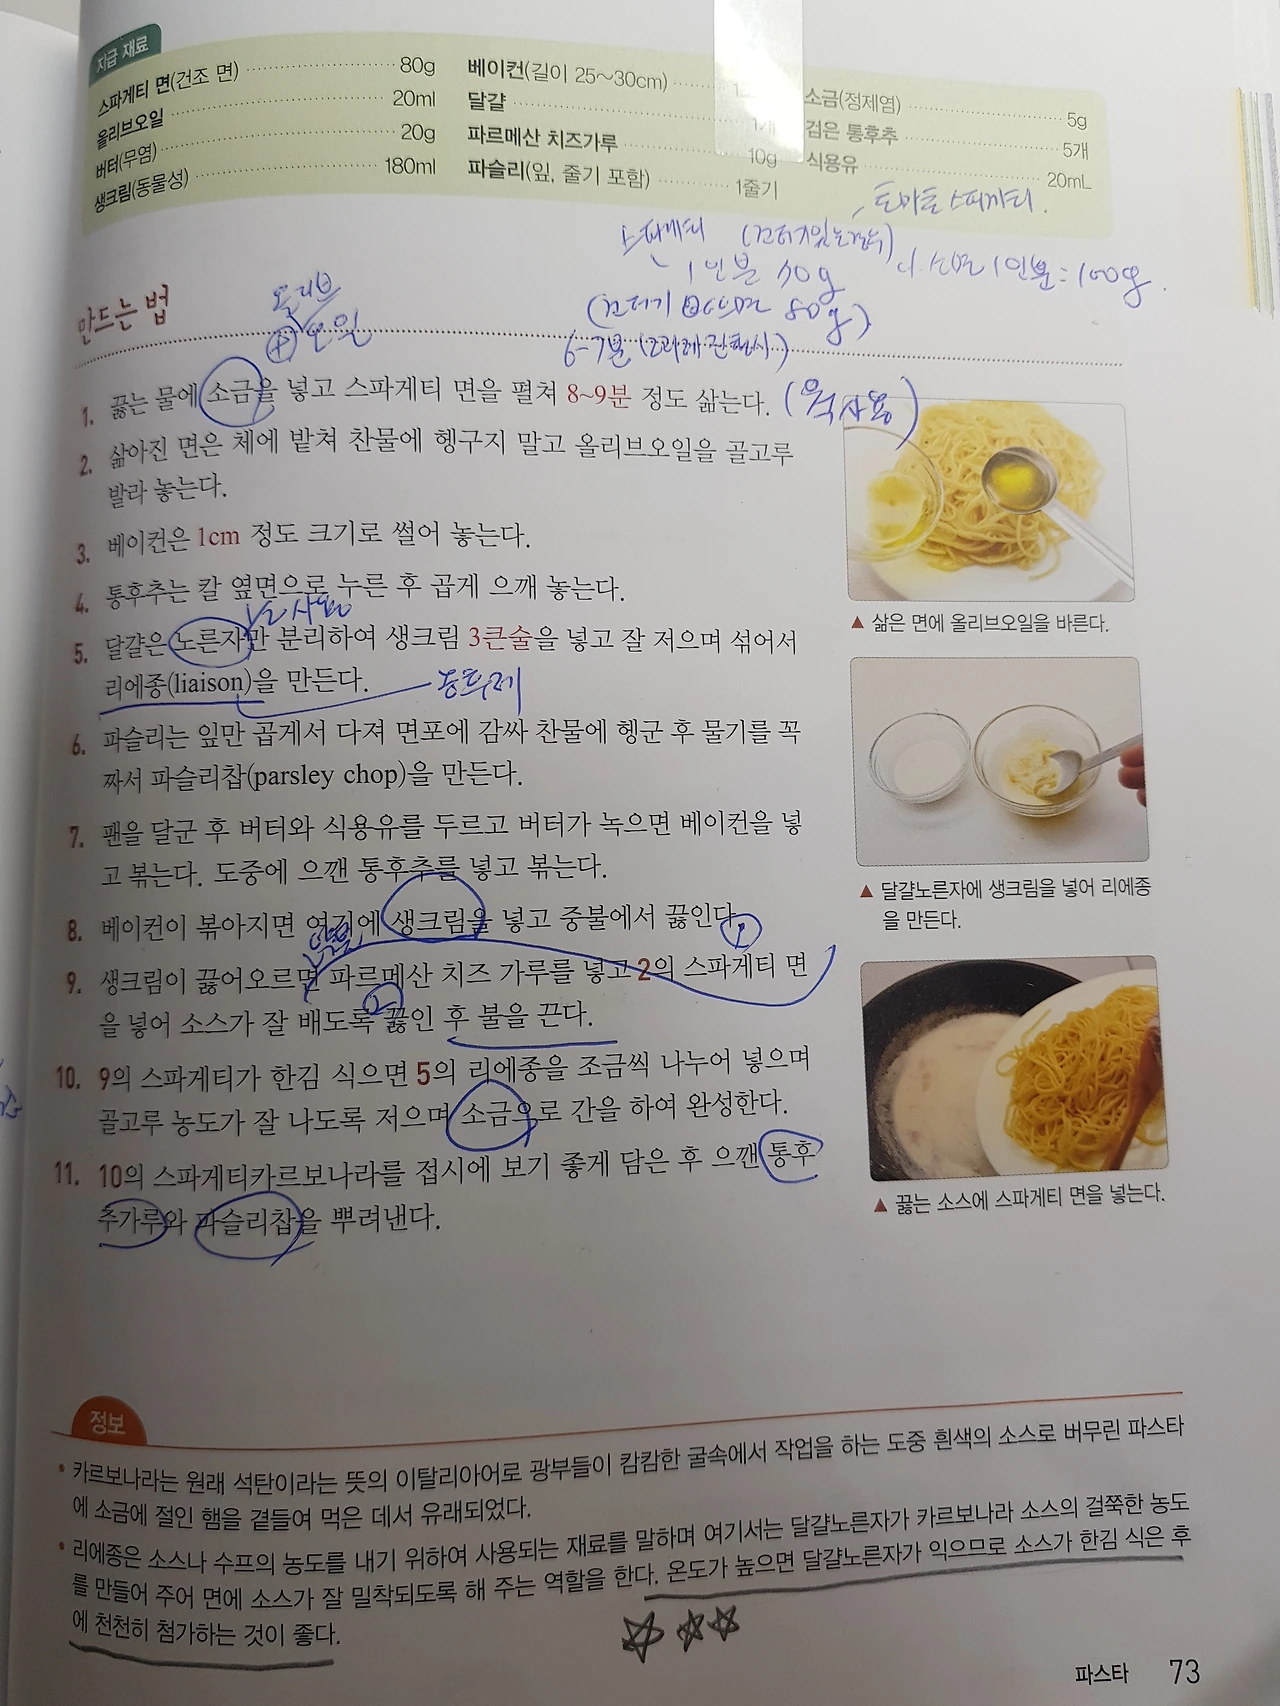 지급 재료
스파게티 면(건조 면) 80g
올리브오일 20ml
버터(무염) 20g
생크림(동물성) 180ml
베이컨(길이 25~30cm)
달걀 1개
파르메산 치즈가루 10g
파슬리(잎, 줄기 포함) 1줄기
소금(정제염) 5g
검은 통후추 5개
식용유 20mL
토마토 스파게티.
스파게티
1인분
소면 1인분=100g.
80g)
6-7분
올리브
오일
만드는 법
1. 끓는 물에 소금을 넣고 스파게티 면을 펼쳐 8~9분 정도 삶는다.
2. 삶아진 면은 체에 밭쳐 찬물에 헹구지 말고 올리브오일을 골고루
발라 놓는다.
3. 베이컨은 1cm 정도 크기로 썰어 놓는다.
4. 통후추는 칼 옆면으로 누른 후 곱게 으깨 놓는다.
5. 달걀은 노른자만 분리하여 생크림 3큰술을 넣고 잘 저으며 섞어서
리에종(liaison)을 만든다.
농후제
6. 파슬리는 잎만 곱게서 다져 면포에 감싸 찬물에 헹군 후 물기를 꼭
짜서 파슬리찹(parsley chop)을 만든다.
7. 팬을 달군 후 버터와 식용유를 두르고 버터가 녹으면 베이컨을 넣
고 볶는다. 도중에 으깬 통후추를 넣고 볶는다.
8. 베이컨이 볶아지면 여기에 생크림을 넣고 중불에서 끓인다.
1
9. 생크림이 끓어오르면 파르메산 치즈 가루를 넣고 2의 스파게티 면
2
을 넣어 소스가 잘 배도록 끓인 후 불을 끈다.
10. 9의 스파게티가 한김 식으면 5의 리에종을 조금씩 나누어 넣으며
골고루 농도가 잘 나도록 저으며 소금으로 간을 하여 완성한다.
11. 10의 스파게티카르보나라를 접시에 보기 좋게 담은 후 으깬 통후
추가루와 파슬리찹을 뿌려낸다.
▲ 삶은 면에 올리브오일을 바른다.
▲ 달걀노른자에 생크림을 넣어 리에종
을 만든다.
▲ 끓는 소스에 스파게티 면을 넣는다.
정보
• 카르보나라는 원래 석탄이라는 뜻의 이탈리아어로 광부들이 캄캄한 굴속에서 작업을 하는 도중 흰색의 소스로 버무린 파스타
에 소금에 절인 햄을 곁들여 먹은 데서 유래되었다.
• 리에종은 소스나 수프의 농도를 내기 위하여 사용되는 재료를 말하며 여기서는 달걀노른자가 카르보나라 소스의 걸쭉한 농도
를 만들어 주어 면에 소스가 잘 밀착되도록 해 주는 역할을 한다. 온도가 높으면 달걀노른자가 익으므로 소스가 한김 식은 후
에 천천히 첨가하는 것이 좋다.
파스타 73